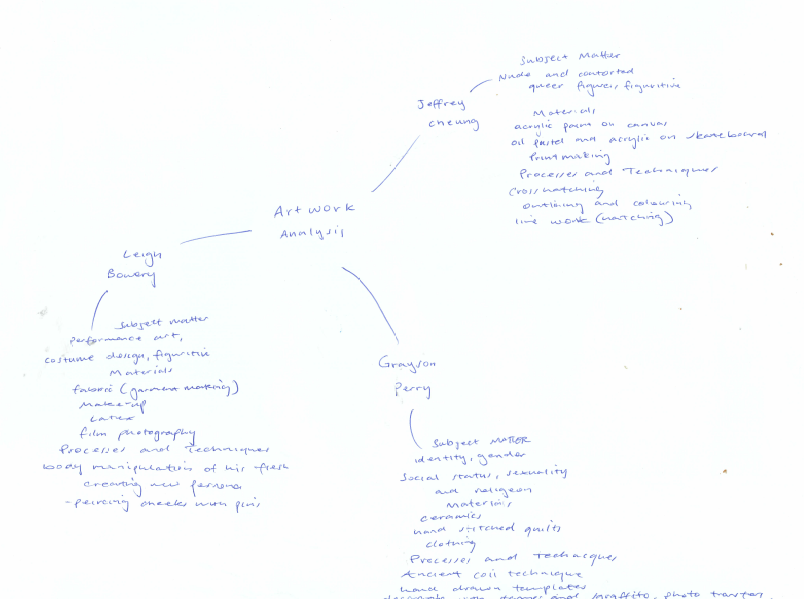 Artwork
Analysis
Jeffrey
Cheung
Subject Matter
Nude and contorted
queer figures, figuritive
Materials
acrylic paint on canvas
oil pastel and acrylic on skateboard
Printmaking
Processes and Technicques
Crosshatching
outlining and colouring
line work (hatching)
Leigh
Bowery
Subject matter
performance art,
costume design, figuritive
Materials
fabric (garment making)
Make-up
Latex
film photography
Processes and Techniques
body manipulation of his flesh
creating new persona
-peircing cheeks with pins
Grayson
Perry
Subject MATTER
identity, gender
Social status, sexuality
and religeon
Materials
Ceramics
hand stitched quilts
Clothing
Processes and Techacques
Ancient coil technique
hand drawn templates
and sgraffito, photo transfer,